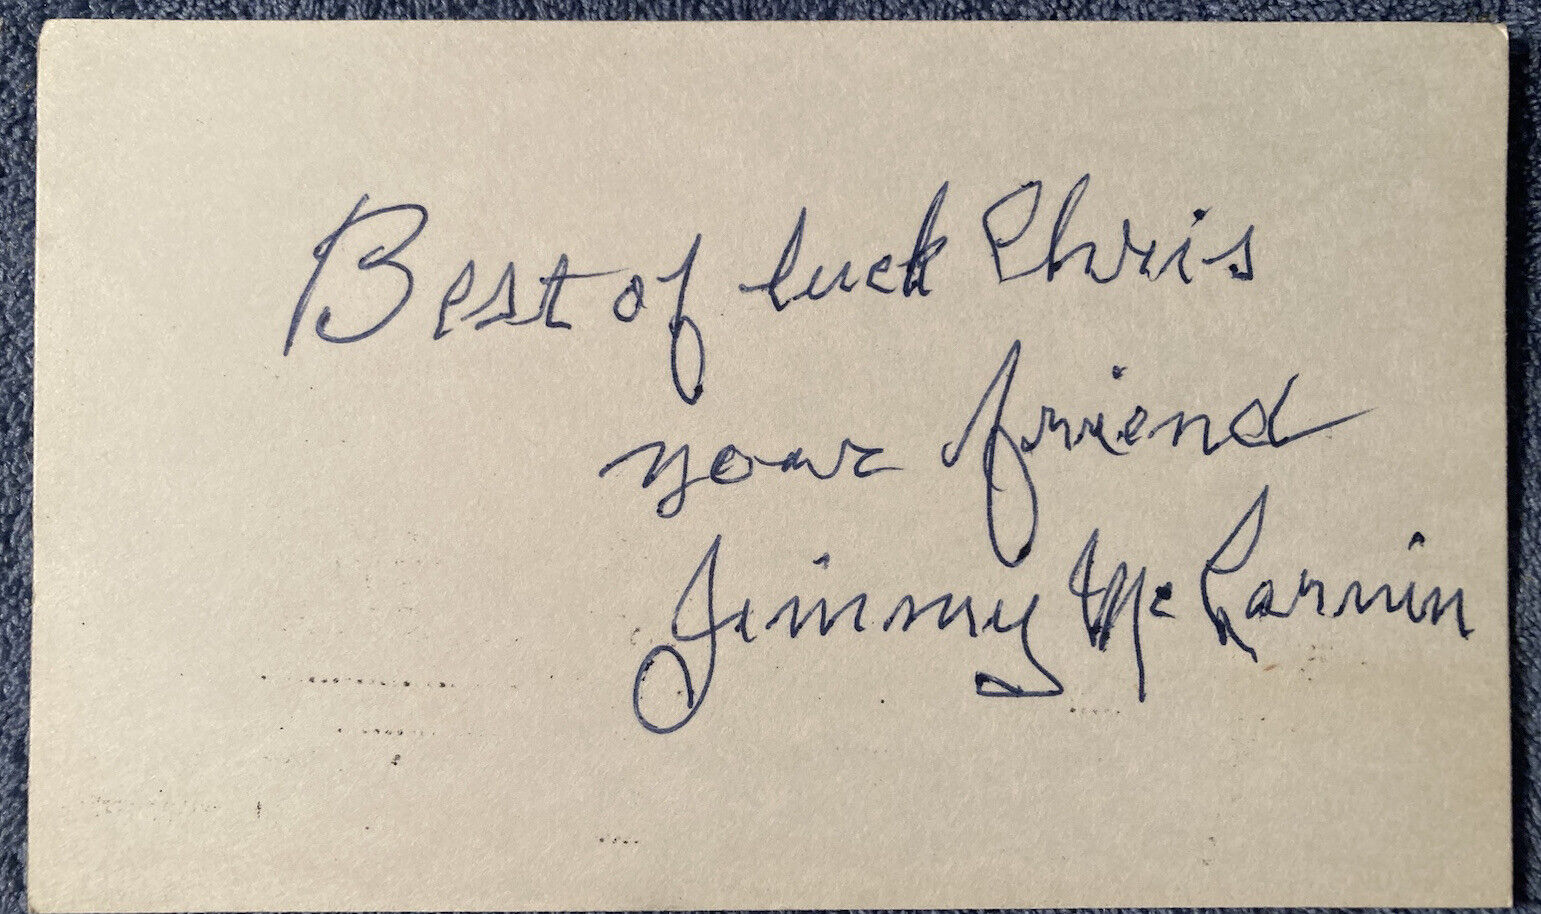 Best of luck Chris
your friend
Jimmy McLarnin